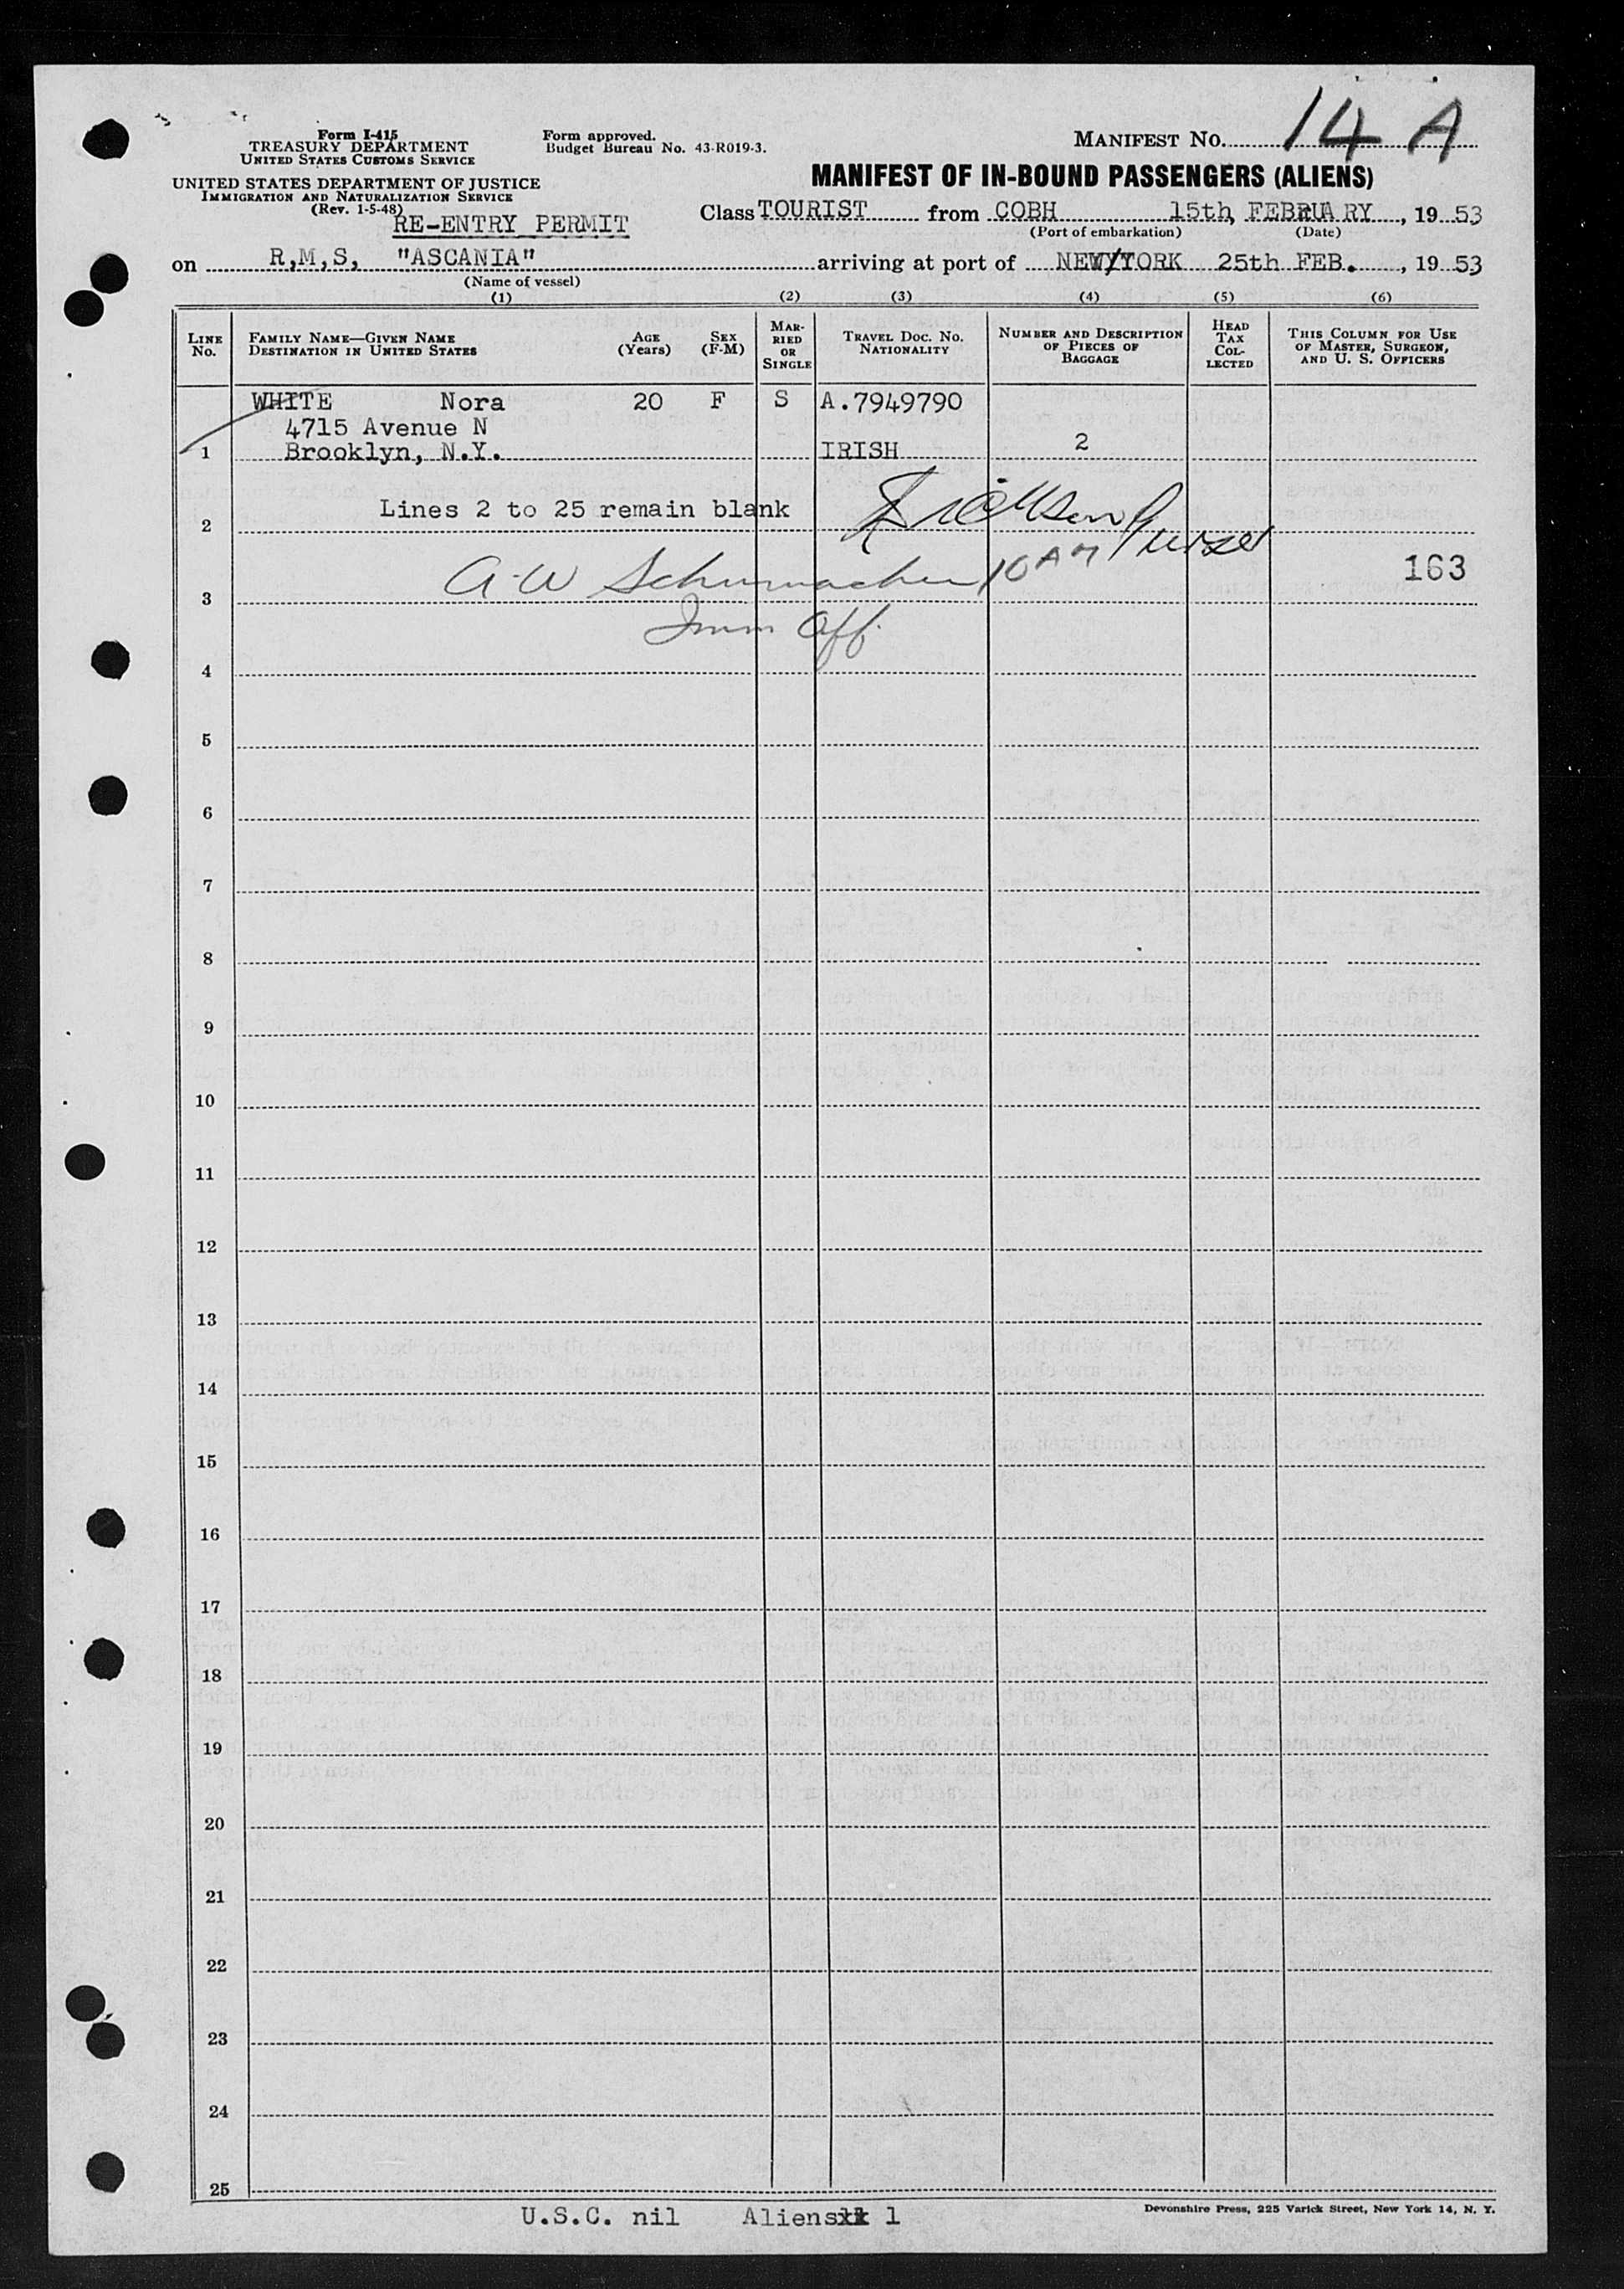 Form I-415
TREASURY DEPARTMENT
UNITED STATES CUSTOMS SERVICE
UNITED STATES DEPARTMENT OF JUSTICE
IMMIGRATION AND NATURALIZATION SERVICE
(Rev. 1-5-48)
RE-ENTRY PERMIT
Form approved.
Budget Bureau No. 43-R019-3.
MANIFEST No. 14 A
MANIFEST OF IN-BOUND PASSENGERS (ALIENS)
Class TOURIST from COBH 15th, FEBRUARY, 19 53
(Port of embarkation) (Date)
on R,M,S, "ASCANIA" arriving at port of NEW/YORK 25th FEB., 19 53
(Name of vessel)
(1) (2) (3) (4) (5) (6)
LINE No.
FAMILY NAME—GIVEN NAME
DESTINATION IN UNITED STATES
AGE (Years)
SEX (F-M)
MAR-RIED OR SINGLE
TRAVEL DOC. No.
NATIONALITY
NUMBER AND DESCRIPTION OF PIECES OF BAGGAGE
HEAD TAX COL-LECTED
THIS COLUMN FOR USE OF MASTER, SURGEON, AND U. S. OFFICERS
WHITE Nora 20 F S A.7949790
4715 Avenue N
1 Brooklyn, N.Y. IRISH 2
Lines 2 to 25 remain blank
2 Purser
A. W Schumacher 10 AM 163
3
Imm Off.
4
5
6
7
8
9
10
11
12
13
14
15
16
17
18
19
20
21
22
23
24
25
U.S.C. nil Aliens 1
Devonshire Press, 225 Varick Street, New York 14, N. Y.